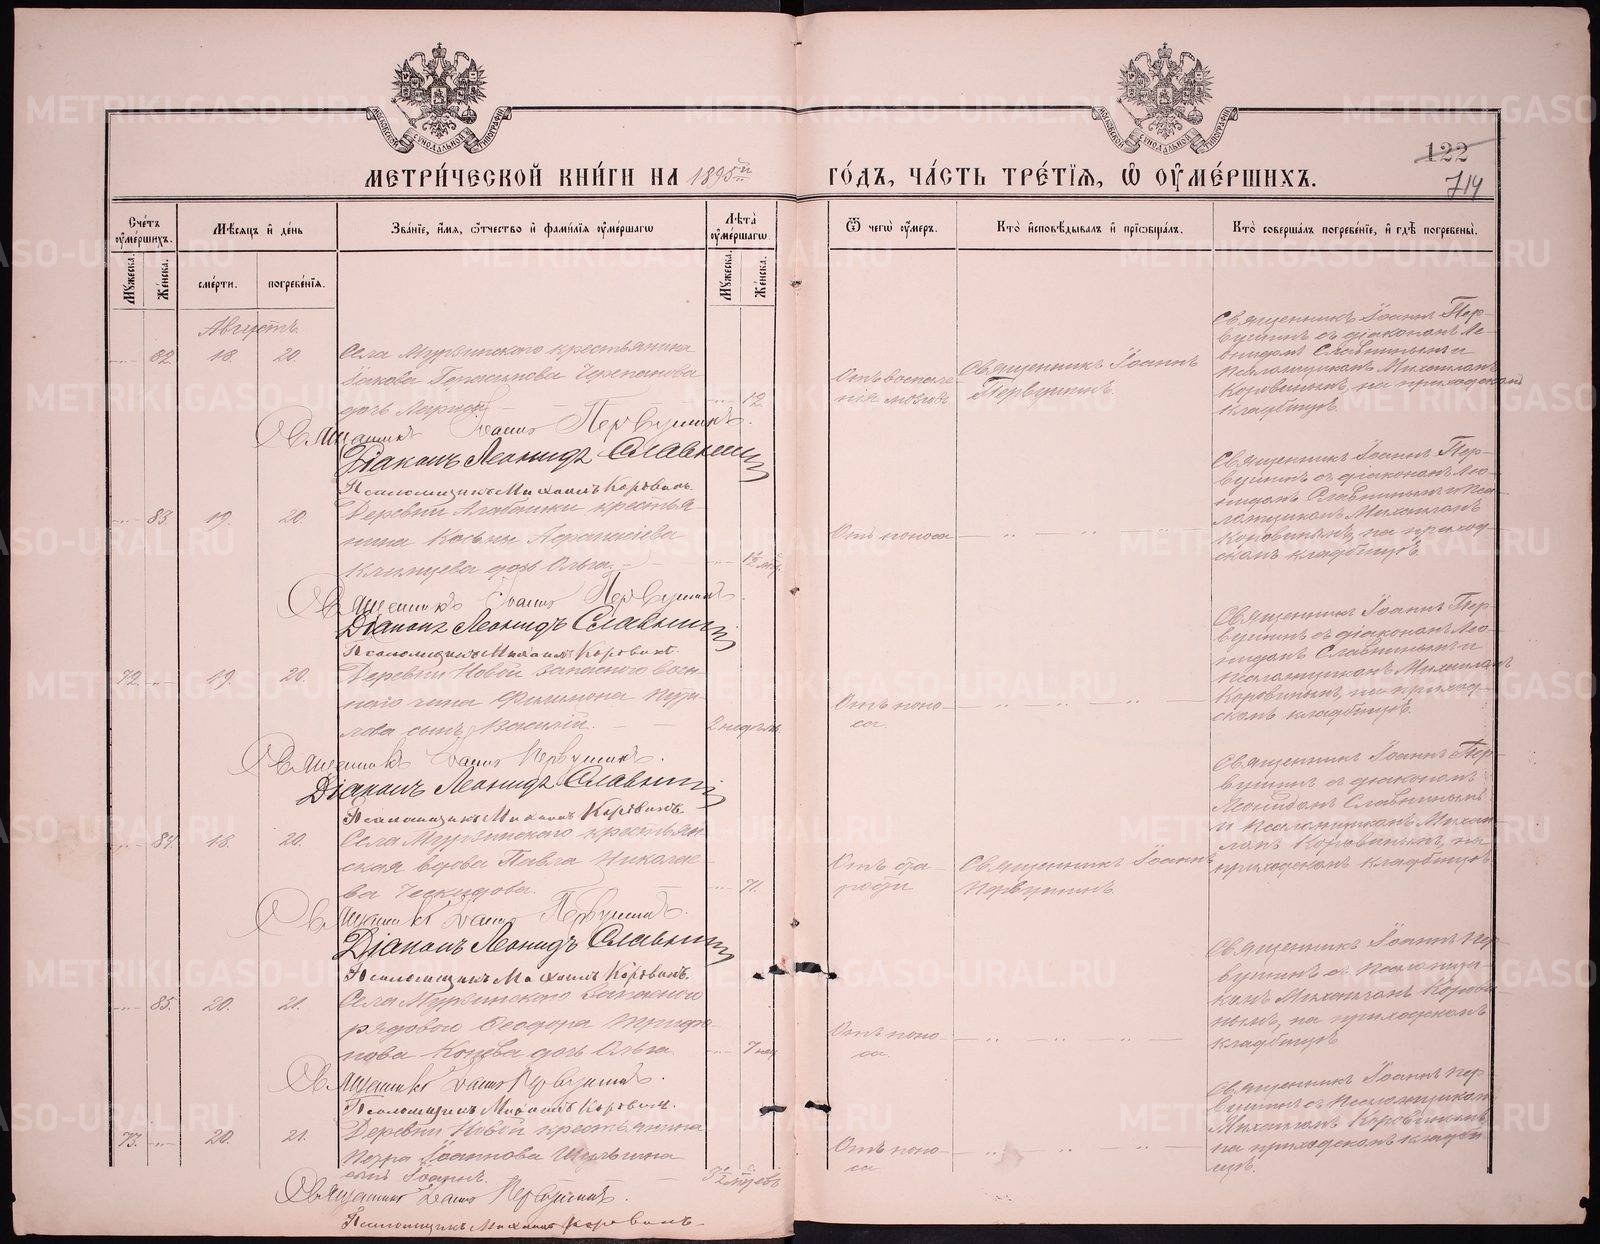 МЕТРИ́ЧЕСКОЙ КНИ́ГИ НА 1895й
ГО́ДЪ, ЧА́СТЬ ТРЕ́ТІЯ, Ѿ ОУМЕ́РШИХЪ.
122
714
Сче́тъ оуме́ршихъ.
Мѣсяцъ и день
Зва́ніе, имя, о́тчество и фами́лія оуме́ршагѡ
Лѣта̀ оуме́ршагѡ
Ѿ чегѡ̀ оу́меръ.
Кто̀ исповѣ́дывалъ и прїѡбща́лъ.
Кто̀ соверша́лъ погребе́ніе, и гдѣ̀ погребены̀.
Мꙋ́жеска.
Же́нска.
сме́рти.
погребе́нїѧ.
Мꙋ́жеска.
Же́нска.
Августъ.
82. 18. 20. Села Мурзинского крестьянина
Іакова Герасимова Черепанова
дочь Марія 12.
Отъ воспале-
нія мозговъ
Священникъ Іоаннъ
Первушинъ.
Священникъ Іоаннъ Пер-
вушинъ съ діакономъ Ле-
онидомъ Славнинымъ и
Псаломщикомъ Михаиломъ
Коровинымъ, на приходскомъ
кладбищѣ.
Священникъ Іоаннъ Первушинъ.
Діаконъ Леонидъ Славнинъ
Псаломщикъ Михаилъ Коровинъ.
83. 19. 20. Деревни Алабашки крестья-
нина Косьмы
дочь Ольга.
Отъ поноса
Священникъ Іоаннъ Пер-
вушинъ съ діакономъ Лео-
нидомъ Славнинымъ и Пса-
ломщикомъ Михаиломъ
Коровинымъ, на приход-
скомъ кладбищѣ.
Священникъ Іоаннъ Первушинъ.
Діаконъ Леонидъ Славнинъ
Псаломщикъ Михаилъ Коровинъ.
72. 19. 20. Деревни Новой запаснаго воен-
наго чина Филимона
сынъ Василій. 2 недѣли
Отъ поно-
са.
Священникъ Іоаннъ Пер-
вушинъ съ діакономъ Лео-
нидомъ Славнинымъ и
псаломщикомъ Михаиломъ
Коровинымъ, на приход-
скомъ кладбищѣ.
Священникъ Іоаннъ Первушинъ.
Діаконъ Леонидъ Славнинъ
Псаломщикъ Михаилъ Коровинъ.
84. 18. 20. Села Мурзинского крестьян-
ская вдова Павла Николае-
ва 71.
Отъ ста-
рости
Священникъ Іоаннъ
Первушинъ.
Священникъ Іоаннъ Пер-
вушинъ съ діакономъ
Леонидомъ Славнинымъ
и Псаломщикомъ Михаи-
ломъ Коровинымъ, на
приходскомъ кладбищѣ.
Священникъ Іоаннъ Первушинъ.
Діаконъ Леонидъ Славнинъ
Псаломщикъ Михаилъ Коровинъ.
85. 20. 21. Села Мурзинского запасной
рядовой Ѳеодора Трифо-
нова дочь Ольга 7 нед
Отъ поно-
са.
Священникъ Іоаннъ Пер-
вушинъ съ Псаломщи-
комъ Михаиломъ Корови-
нымъ, на приходскомъ
кладбищѣ
Священникъ Іоаннъ Первушинъ.
Псаломщикъ Михаилъ Коровинъ.
73. 20. 21. Деревни Новой крестьянина
Петра Іоаннова
сынъ Іоаннъ.
Отъ поно-
са
Священникъ Іоаннъ Пер-
вушинъ съ Псаломщикомъ
Михаиломъ Коровинымъ
на приходскомъ кладби-
щѣ.
Священникъ Іоаннъ Первушинъ.
Псаломщикъ Михаилъ Коровинъ
METRIKI.GASO-URAL.RU